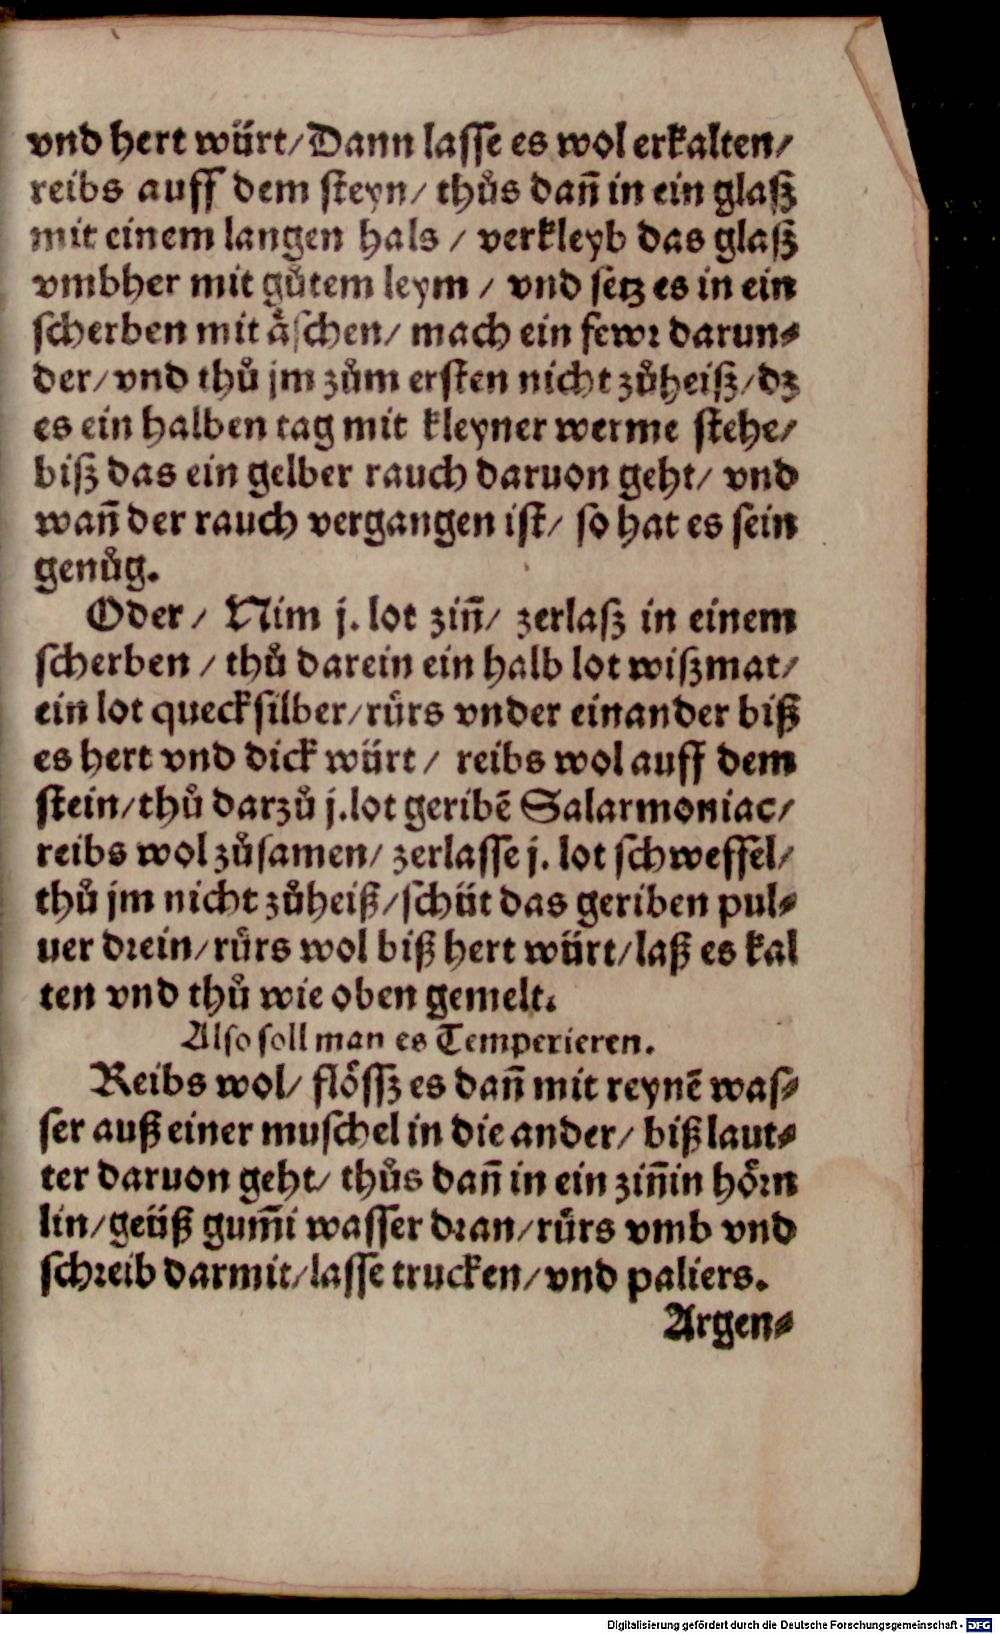 vnd hert würt/Dann lasse es wol erkalten/
reibs auff dem steyn/ thůs dañ in ein glaß
mit einem langen hals / verkleyb das glaß
vmbher mit gůtem leym / vnd setz es in ein
scherben mit äschen/ mach ein fewr darun-
der/vnd thů jm zům ersten nicht zůheiß/dz
es ein halben tag mit kleyner werme stehe/
biß das ein gelber rauch daruon geht/ vnd
wañ der rauch vergangen ist/ so hat es sein
genůg.
Oder / Nim j. lot ziñ/ zerlaß in einem
scherben / thů darein ein halb lot wißmat/
ein lot quecksilber/růrs vnder einander biß
es hert vnd dick würt / reibs wol auff dem
stein/thů darzů j.lot geribē Salarmoniac/
reibs wol zůsamen/ zerlasse j. lot schweffel/
thů jm nicht zůheiß/schüt das geriben pul-
uer drein/růrs wol biß hert würt/laß es kal
ten vnd thů wie oben gemelt.
Also soll man es Temperieren.
Reibs wol/ flössz es dañ mit reynē was-
ser auß einer muschel in die ander/ biß laut-
ter daruon geht/ thůs dañ in ein ziñin hörn
lin/geüß gum̃i wasser dran/růrs vmb vnd
schreib darmit/lasse trucken/vnd paliers.
Argen-
Digitalisierung gefördert durch die Deutsche Forschungsgemeinschaft - DFG